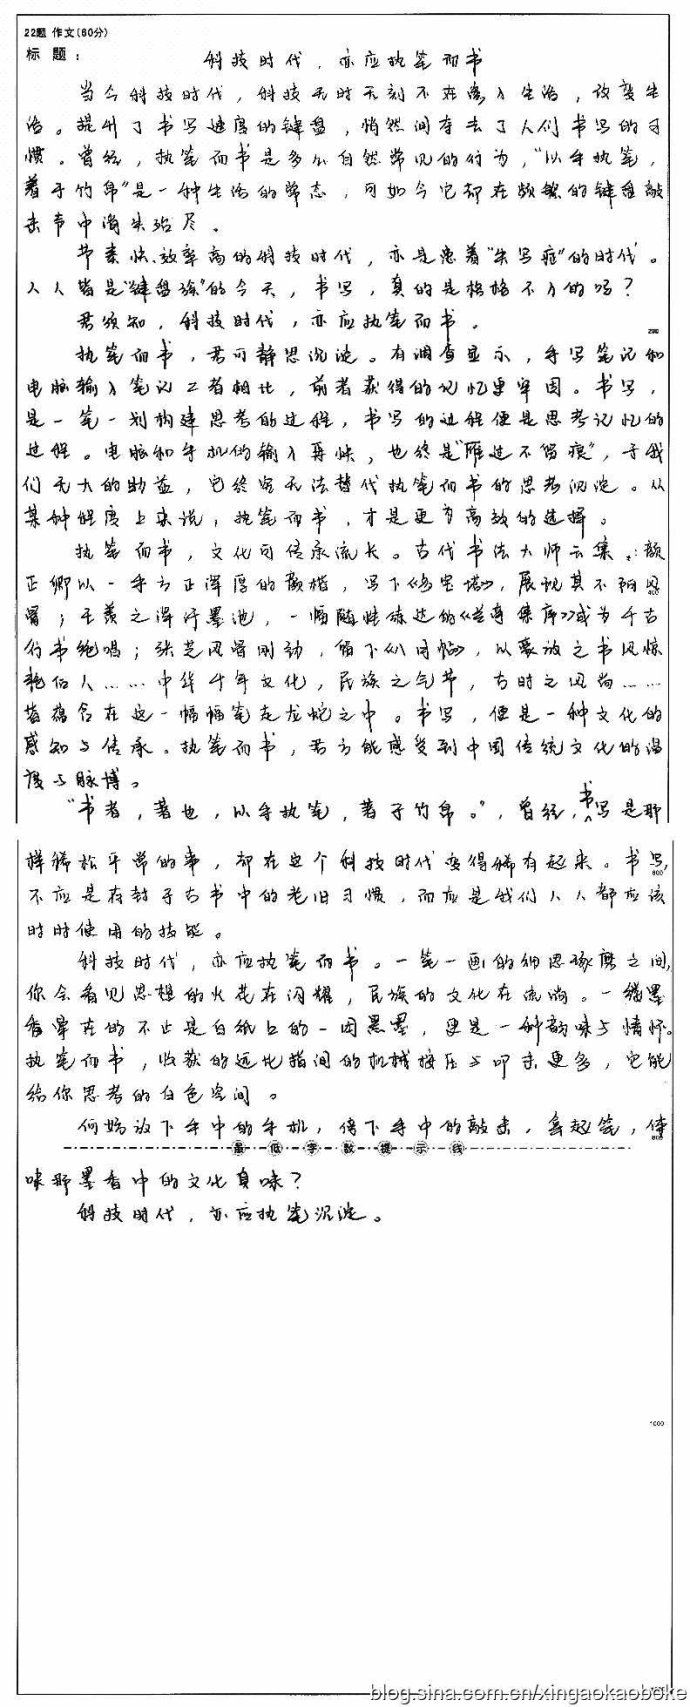 22题 作文(60分)
标 题：
科技时代，亦应执笔而书
当今科技时代，科技无时无刻不在渗入生活，改变生
活。提升了书写速度的键盘，悄然间夺去了人们书写的习
惯。曾经，执笔而书是多么自然常见的行为，“以手执笔，
着于竹帛”是一种生活的常态，可如今它却在频繁的键盘敲
击声中消失殆尽。
节奏快效率高的科技时代，亦是患着“失写症”的时代。
人人皆是“键盘族”的今天，书写，真的是格格不入的吗？
君须知，科技时代，亦应执笔而书。
200
执笔而书，君可静思沉淀。有调查显示，手写笔记和
电脑输入笔记二者相比，前者获得的记忆更牢固。书写，
是一笔一划构建思考的过程，书写的过程便是思考记忆的
过程。电脑和手机的输入再快，也终是“雁过不留痕”，于我
们无大的助益，它终究无法替代执笔而书的思考沉淀。从
某种程度上来说，执笔而书，才是更为高效的选择。
执笔而书，文化可传承流长。古代书法大师云集：颜
正卿以一手方正浑厚的颜楷，写下《多宝塔》，展现其不阿风
400
骨；王羲之挥汗墨池，一幅随性练达的《兰亭集序》成为千古
行书绝唱；张芝风骨刚劲，留下《八月帖》，以豪放之书风惊
艳他人……中华千年文化，民族之气节，古时之风尚……
皆蕴含在这一幅幅笔走龙蛇之中。书写，便是一种文化的
感知与传承。执笔而书，君方能感受到中国传统文化的温
度与脉搏。
“书者，著也，以手执笔，著于竹帛。”，曾经，书写是那
样稀松平常的事，却在这个科技时代变得稀有起来。书写，
600
不应是存封于古书中的老旧习惯，而应是我们人人都应该
时时使用的技能。
科技时代，亦应执笔而书。一笔一画的细思琢磨之间，
你会看见思想的火花在闪耀，民族的文化在流淌。一缕墨
香牵在的不止是白纸上的一团黑墨，更是一种韵味与情怀。
执笔而书，收获的远比指间的机械按压与叩击更多，它能
给你思考的白色空间。
何妨放下手中的手机，停下手中的敲击，拿起笔，体
800
最低字数提示线
味那墨香中的文化真味？
科技时代，亦应执笔沉淀。
1000
blog.sina.com.cn/xingaokaoboke